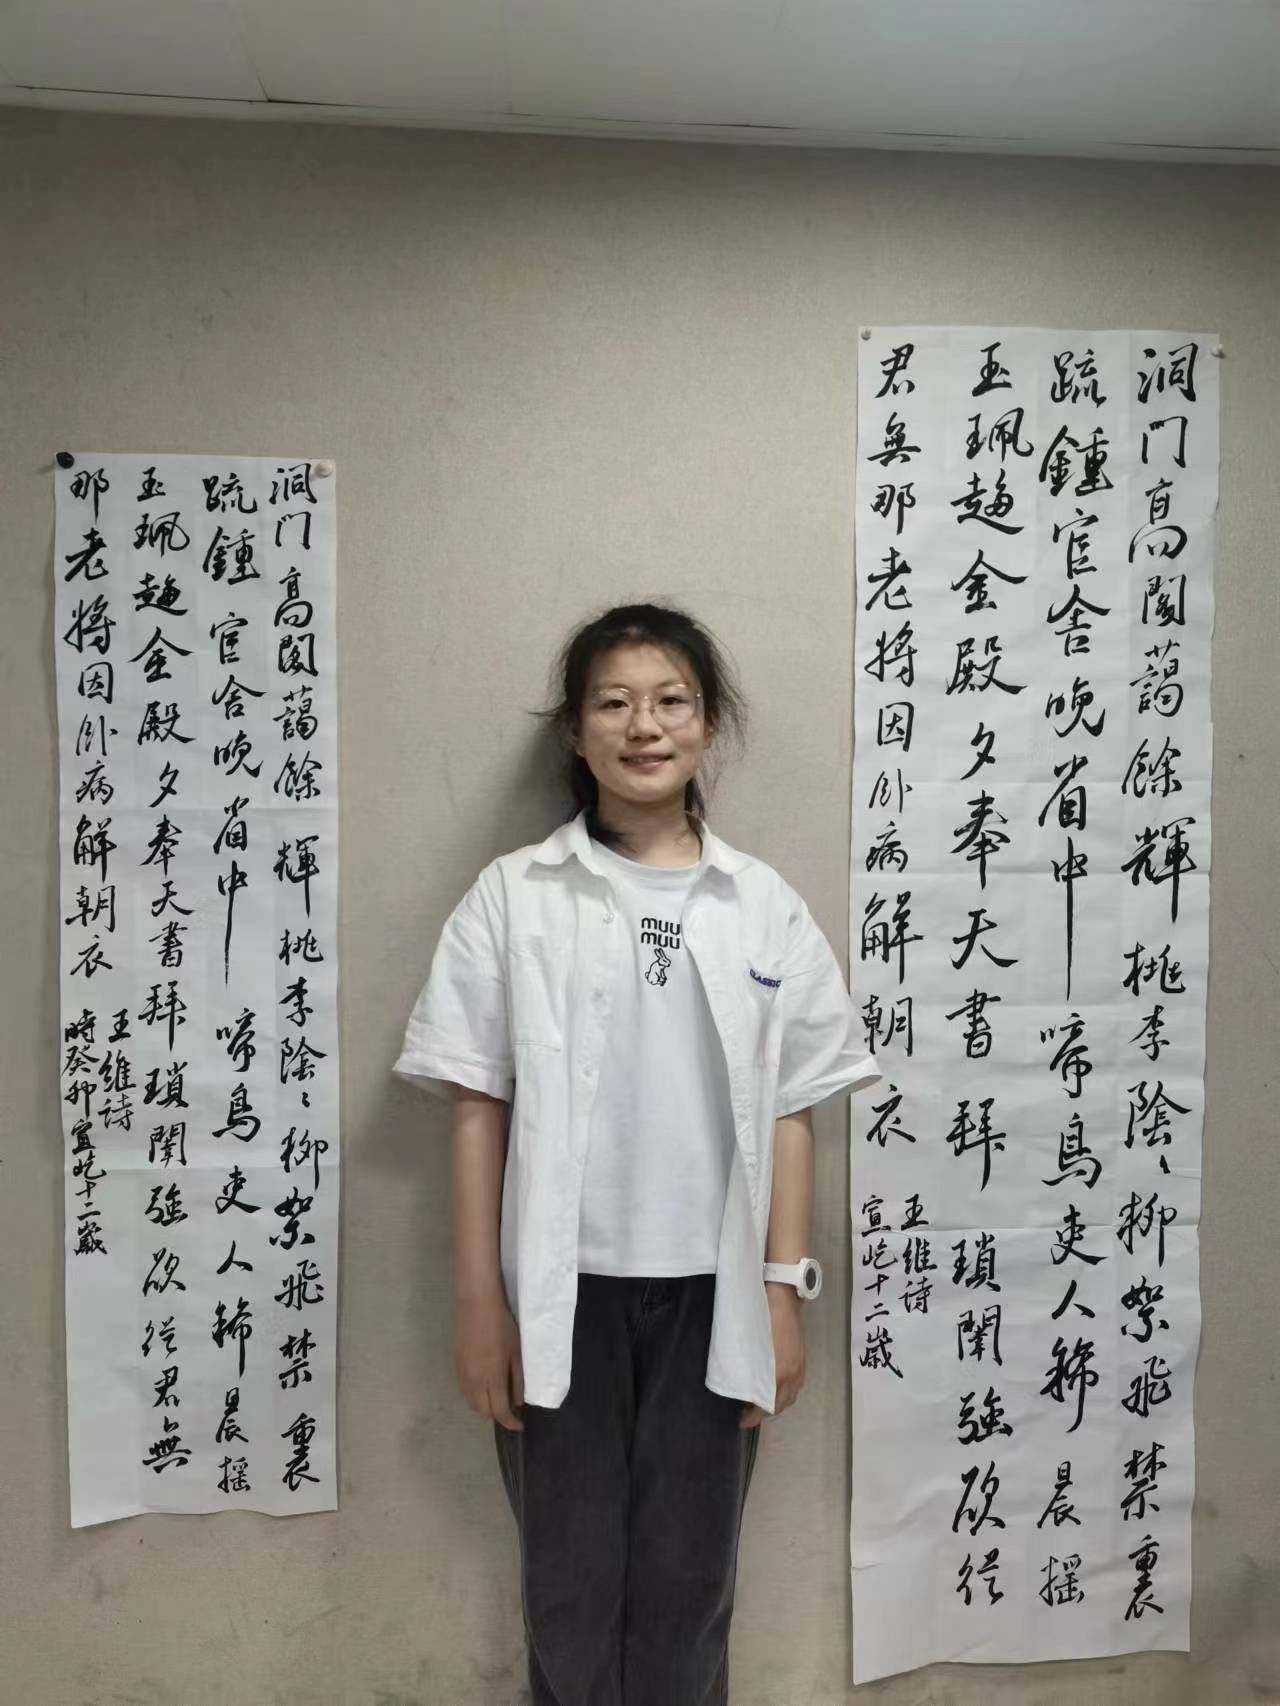 洞門高閣藹餘輝桃李陰〻柳絮飛禁裏
疏鍾官舍晚省中啼鳥吏人稀晨摇
玉珮趍金殿夕奉天書拜瑣闈強欲從
君無那老將因卧病解朝衣
王維詩
宣屹十二歲
muu
muu
CLASSIC
洞門高閣藹餘輝桃李陰〻柳絮飛禁裏
疏鍾官舍晚省中啼鳥吏人稀晨摇
玉珮趍金殿夕奉天書拜瑣闈強欲從君無
那老將因卧病解朝衣
王維詩
時癸卯宣屹十二歲